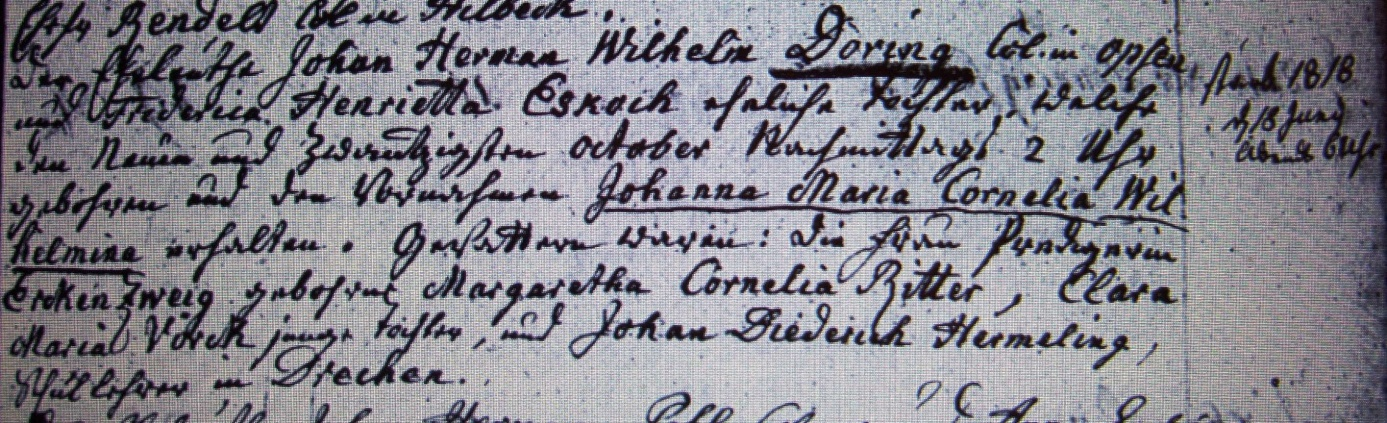 Rendell Col. in Hilbeck.
Der Eheleuthe Johan Herman Wilhelm Döring Col. in opsen
und Friderica Henrietta Eskoch eheliche Tochter, welche
den Neuen und Zwantzigsten october Nachmittags 2 Uhr
gebohren und den Vornahmen Johanna Maria Cornelia Wil
helmina erhalten. Gevattern waren: die Frau Predigerin
Erckenzweig gebohrne Margaretha Cornelia Ritter, Clara
Maria Vörck junge Tochter, und Johan Diederich Hermeling,
Schullehrer in Drechen.
starb 1818
d 18 Juny
abends 6 Uhr